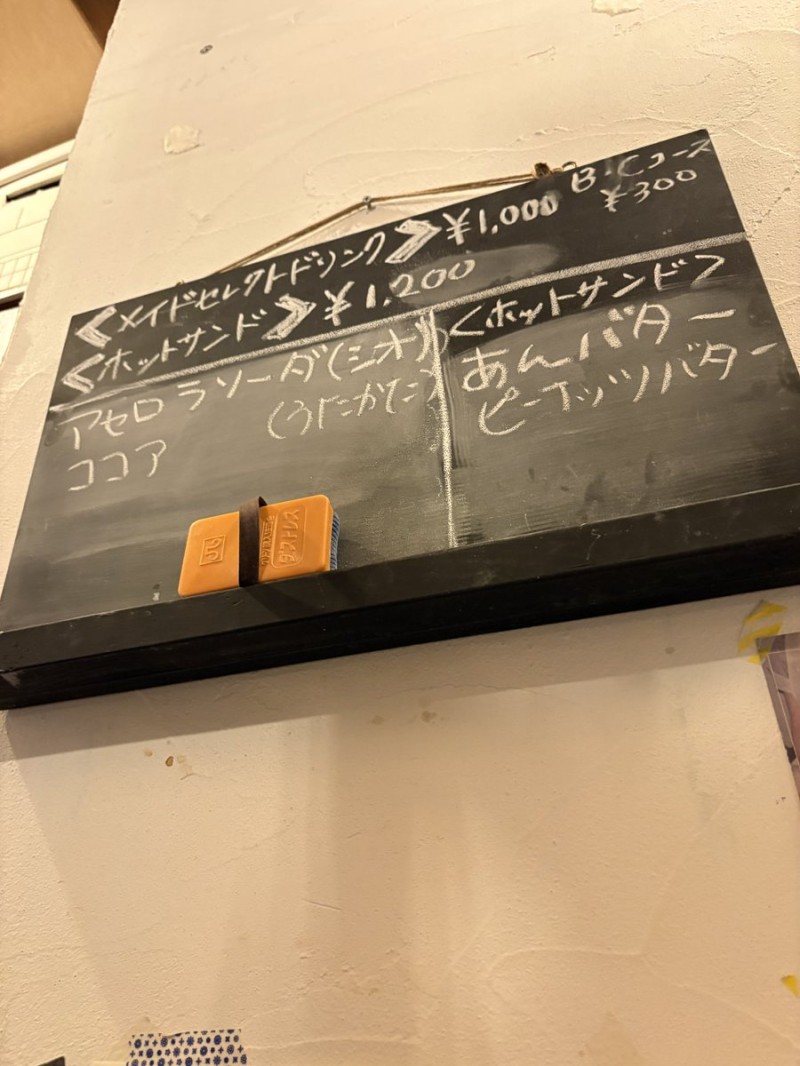 <メイドセレクトドリンク> ¥1,000
B・Cコース
¥300
<ホットサンド> ¥1,200
アセロラソーダ(シオリ)
(うたかた)
ココア
<ホットサンド>
あんバター
ピーナッツバター
ダストレス